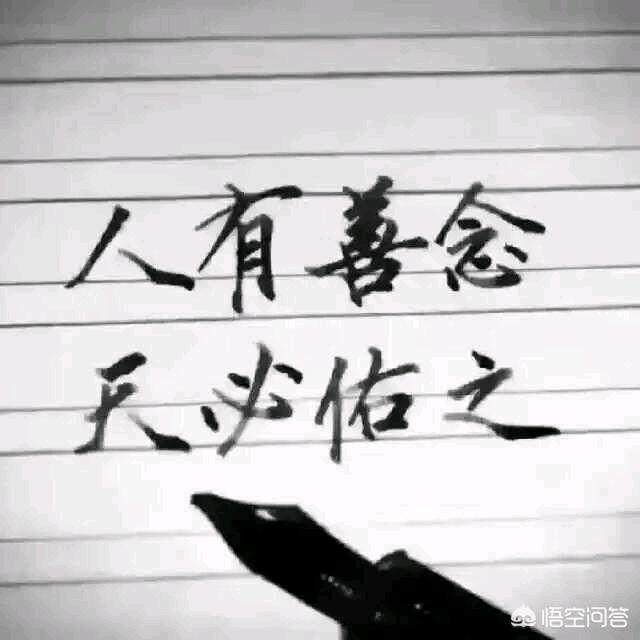 人有善念
天必佑之
悟空问答